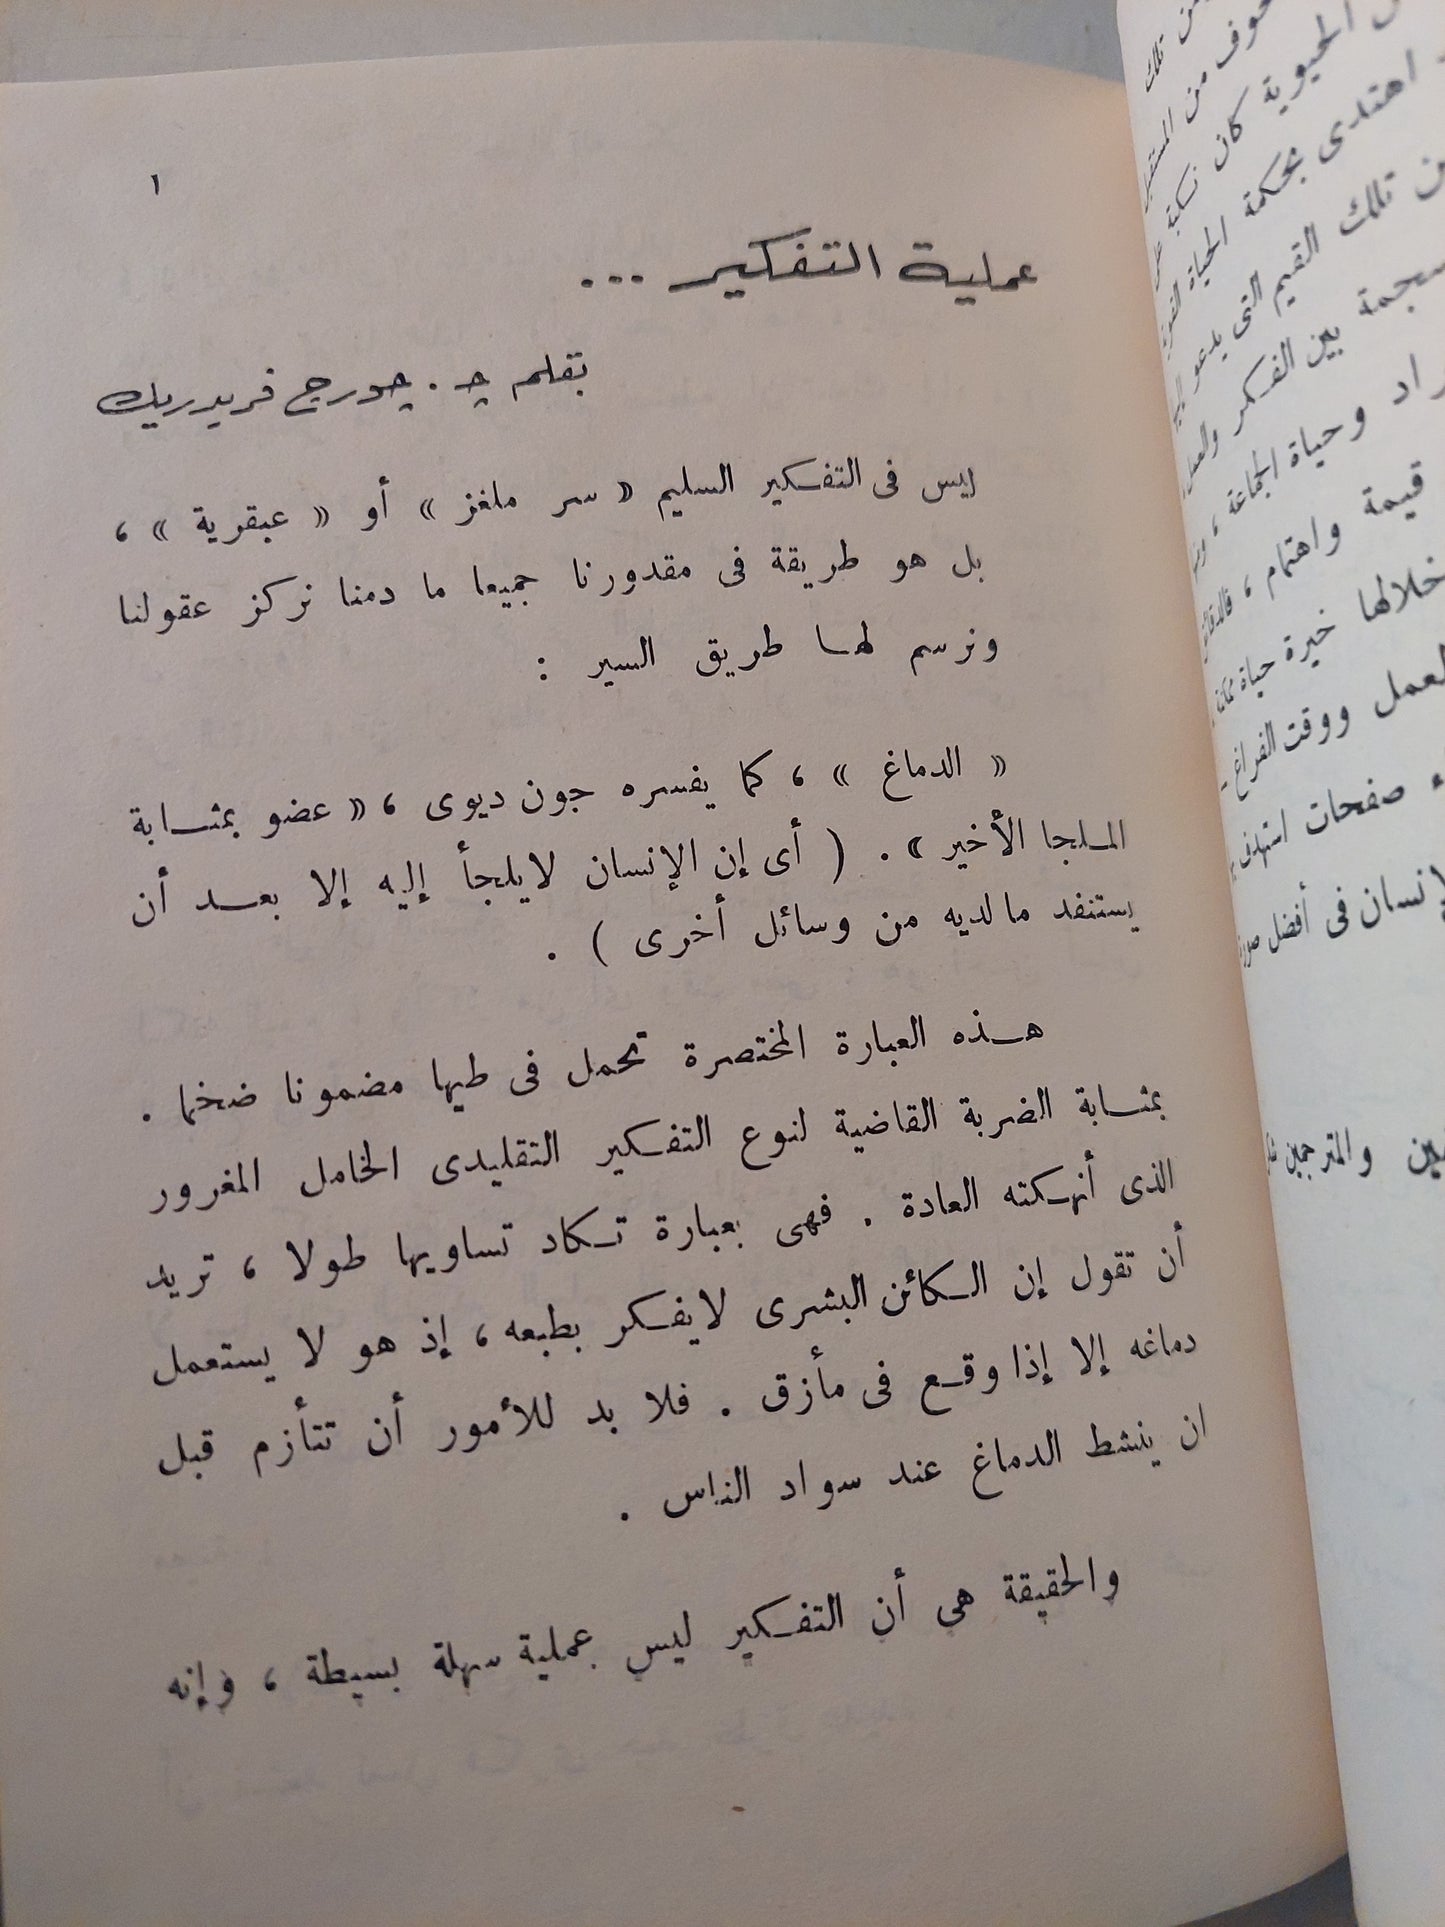 ١
عملية التفكير ...
بقلم چ . چورج فريدريك
ليس فى التفكير السليم « سر ملغز » أو « عبقرية » ،
بل هو طريقة فى مقدورنا جميعا ما دمنا نركز عقولنا
ونرسم لها طريق السير :
« الدماغ » ، كما يفسره جون ديوى ، « عضو بمثابة
الملجا الأخير » . ( أى إن الإنسان لايلجأ إليه إلا بعد أن
يستنفد مالديه من وسائل أخرى ) .
هذه العبارة المختصرة تحمل فى طيها مضمونا ضخما .
بمثابة الضربة القاضية لنوع التفكير التقليدى الخامل المغرور
الذى أنهكته العادة . فهى بعبارة تكاد تساويها طولا ، تريد
أن تقول إن الكائن البشرى لايفكر بطبعه ، إذ هو لا يستعمل
دماغه إلا إذا وقع فى مأزق . فلا بد للأمور أن تتأزم قبل
ان ينشط الدماغ عند سواد الناس .
والحقيقة هى أن التفكير ليس عملية سهلة بسيطة ، وإنه
من تلك
من المستقبل
الحيوية كان نكبة على
اهتدى بحكمة الحياة
تلك القيم التى يدعو إليها
بين الفكر والعمل
وحياة الجماعة ،
قيمة واهتمام ،
خلالها خيرة حياة
العمل ووقت الفراغ -
صفحات استهدف
الإنسان فى أفضل صورة
والمترجمين